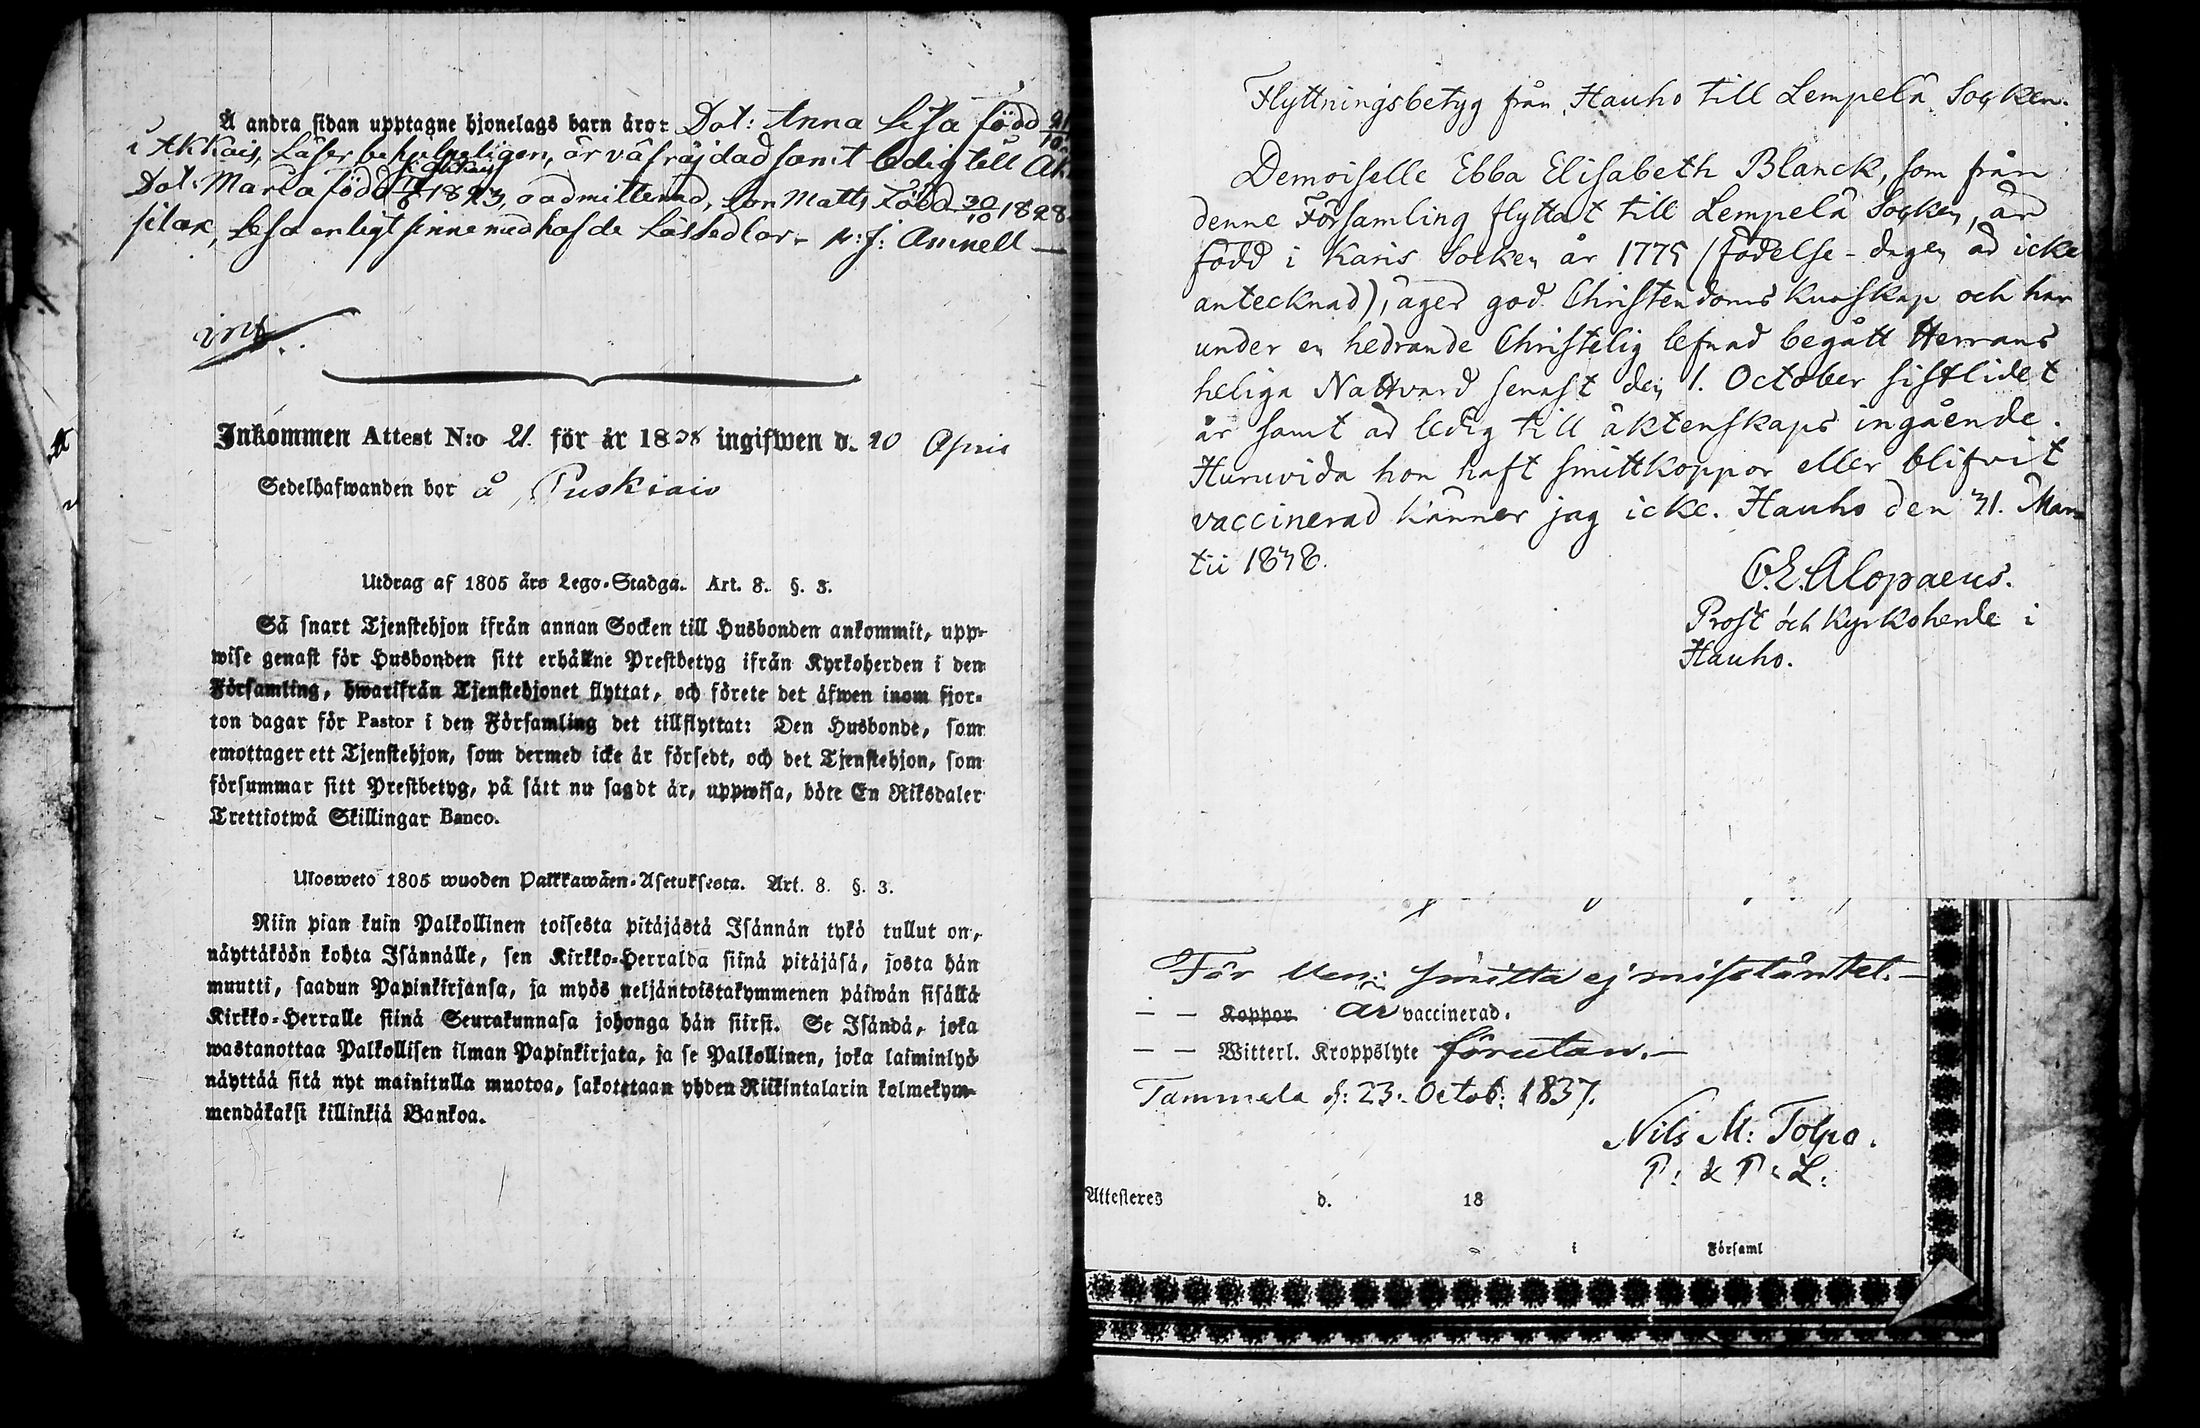 Å andra sidan upptagne hjonelags barn äro: Dot: Anna Lisa född 21/10
i Akkais, Läser behjelpeligen, är väfräjdad samt ledig till
Dot: Maria född 1823, oadmitterad, Son Matts Född 30/10 1828
Lisa enligt finne medhafde Lässedlar. Aminell
inf.
Inkommen Attest N:o 21. för år 1838 ingifwen d. 20 April
Sedelhafwanden bor å Puskiais
Utdrag af 1805 års Lego-Stadga. Art. 8. §. 3.
Så snart Tjenstehjon ifrån annan Socken till Husbonden ankommit, upp-
wise genast för Husbonden sitt erhållne Prestbetyg ifrån Kyrkoherden i den
Församling, hwarifrån Tjenstehjonet flyttat, och förete det äfwen inom fjor-
ton dagar för Pastor i den Församling det tillflyttat: Den Husbonde, som
emottager ett Tjenstehjon, som dermed icke är försedt, och det Tjenstehjon, som
försummar sitt Prestbetyg, på sätt nu sagdt är, uppwisa, böte En Riksdaler
Trettiotwå Skillingar Banco.
Ulosweto 1805 wuoden Palkkawäen-Asetuksesta. Art. 8. §. 3.
Niin pian kuin Palkollinen toisesta pitäjästä Isännän tykö tullut on,
näyttäköön kohta Isännälle, sen Kirkko-Herralda siinä pitäjäsä, josta hän
muutti, saadun Papinkirjansa, ja myös neljäntoistakymmenen päiwän sisällä
Kirkko-Herralle siinä Seurakunnasa johonga hän siirsi. Se Isändä, joka
wastanottaa Palkollisen ilman Papinkirjata, ja se Palkollinen, joka laiminlyö
näyttää sitä nyt mainitulla muotoa, sakotetaan yhden Riikintalarin kolmekym-
mendäkaksi killinkiä Bankoa.
Flyttningsbetyg från Hauho till Lempelä Socken.
Demoiselle Ebba Elisabeth Blanck, som från
denne Församling flyttat till Lempelä Socken, är
född i Karis Socken år 1775 (födelse-dagen är icke
antecknad), äger god Christendoms kunskap och har
under en hedrande Christelig lefnad begått Herrans
heliga Nattvard senast den 1. October sistlidet
år samt är ledig till äktenskaps ingående.
Huruvida hon haft smittkoppor eller blifvit
vaccinerad känner jag icke. Hauho den 31. Mar=
tii 1838.
C. E. Alopaeus.
Prost och Kyrkoherde i
Hauho.
För Ven: smitta ej misstänkt.
— — Koppor är vaccinerad.
— — Witterl. Kroppslyte förutan.—
Tammela d: 23. Octob: 1837.
Nils M: Tolpo.
P: & P: L:
Attesteres d. 18
i Församl